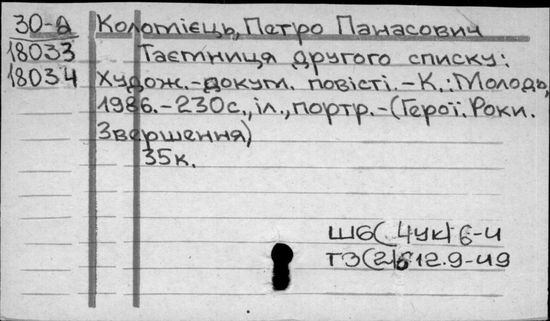 30-А Коломієць, Петро Панасович
18033 Таємниця другого списку:
18034 Худож.-докум. повісті.-К.: Молодь,
1986.-230с., іл., портр.-(Герої. Роки.
Звершення)
35к.
Ш6(4Ук)6-4
Т3(2)612.9-49